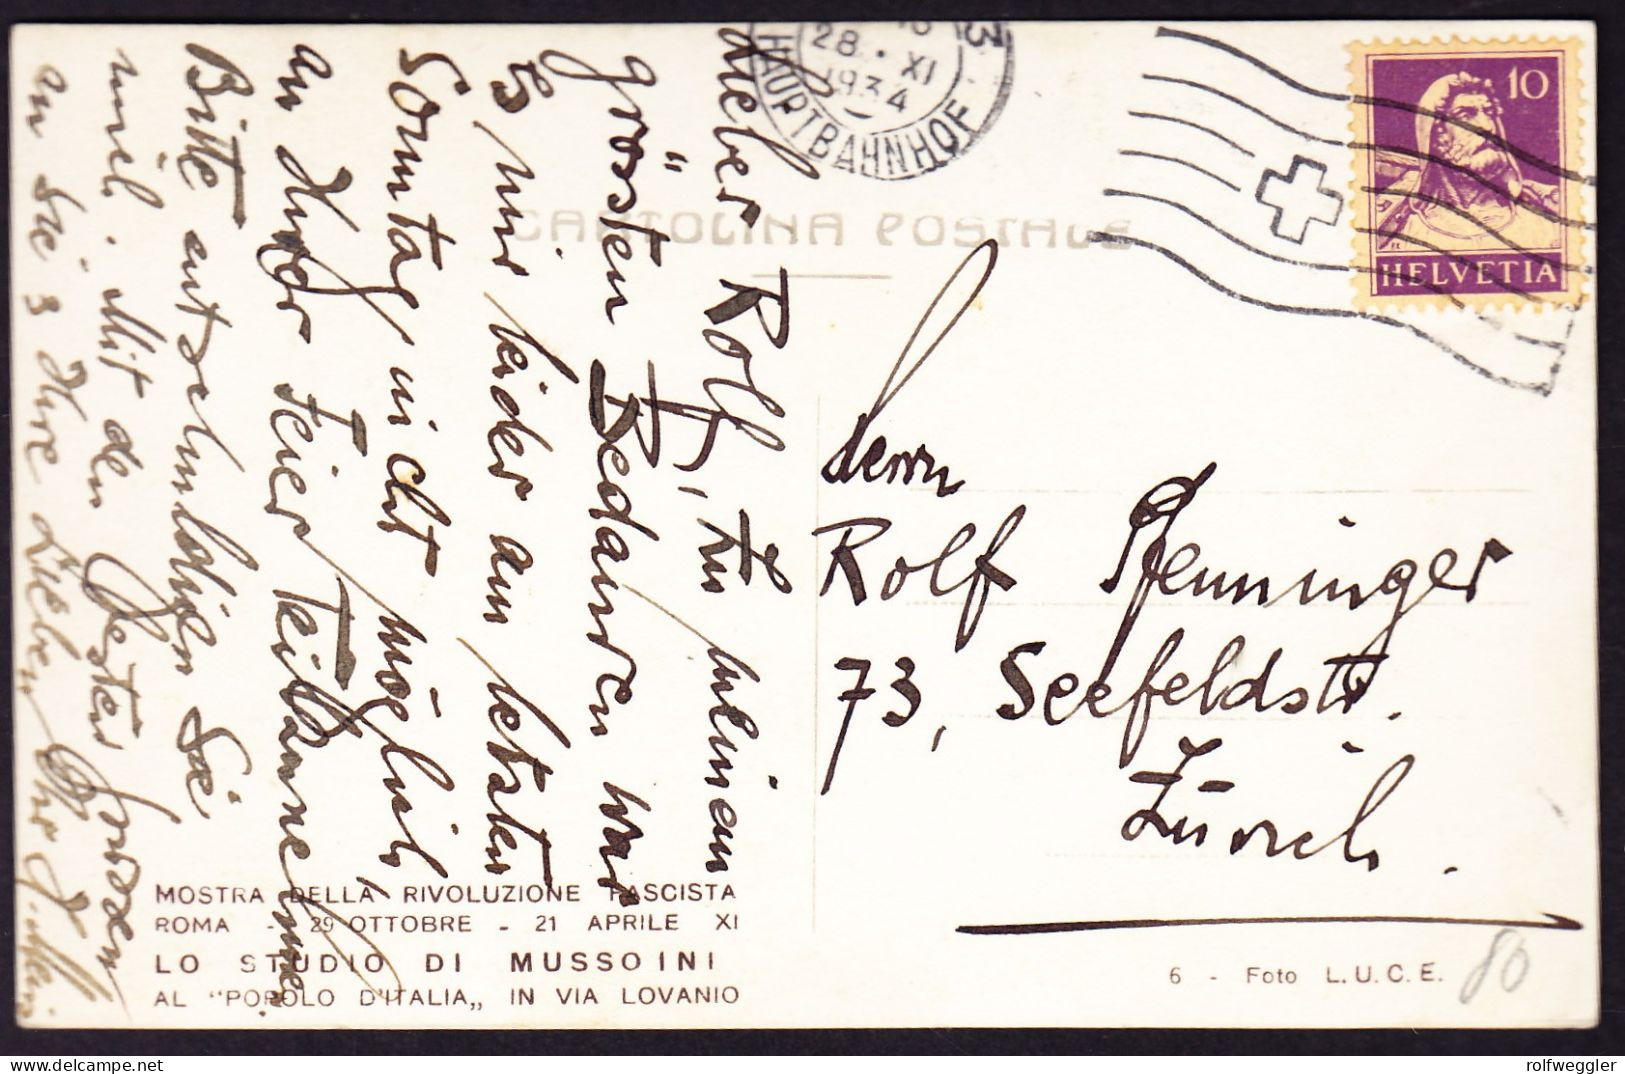 28. XI
1934
HAUPTBAHNHOF
3
10
HELVETIA
CARTOLINA POSTALE
Lieber Rolf, Zu meinem
grössten Bedauren war
Es mir leider am letzten
Sonntag nicht möglich,
an Ihrer Feier Teilzunehmen.
Bitte entschuldigen Sie
mich. Mit den besten Grüssen
an Sie & Ihre Lieben, Ihr
Herrn
Rolf Pfenninger
73, Seefeldstr.
Zürich.
MOSTRA DELLA RIVOLUZIONE FASCISTA
ROMA - 29 OTTOBRE - 21 APRILE XI
LO STUDIO DI MUSSOINI
AL "POPOLO D'ITALIA„ IN VIA LOVANIO
6 - Foto L.U.C.E.
80
delcampe.net
rolfweggler